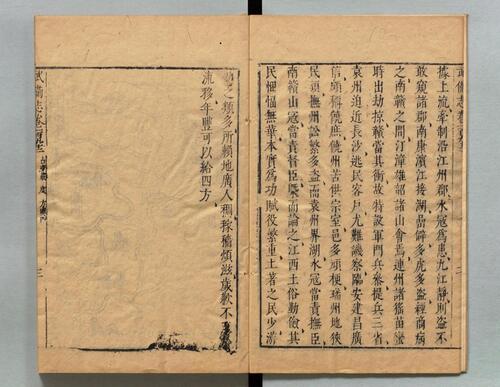 據上流牽制沿江州郡水寇為患九江靜則盜不
敢窺諸郡南康濱江接湖
之南贛之間汀漳雄韶諸山會焉連州諸猺苗蠻
時出劫掠贛當其衝故特設軍門兵參提兵三省
袁州迫近長沙逃民客戶尤難譏察臨安建昌廣
信頗稱饒庶饒州苦供宗室邑多頑梗瑞州地狹
民頑撫州訟繁多盜而袁州界湖水寇當責撫臣
南贛山寇當責督臣槩而論之江西土俗勤儉其
民愠愊無華本實為功賦役繁重土著之民少游
之類多所賴地廣人稠稼穡煩滋歲歉不
流移年豐可以給四方
武備志卷